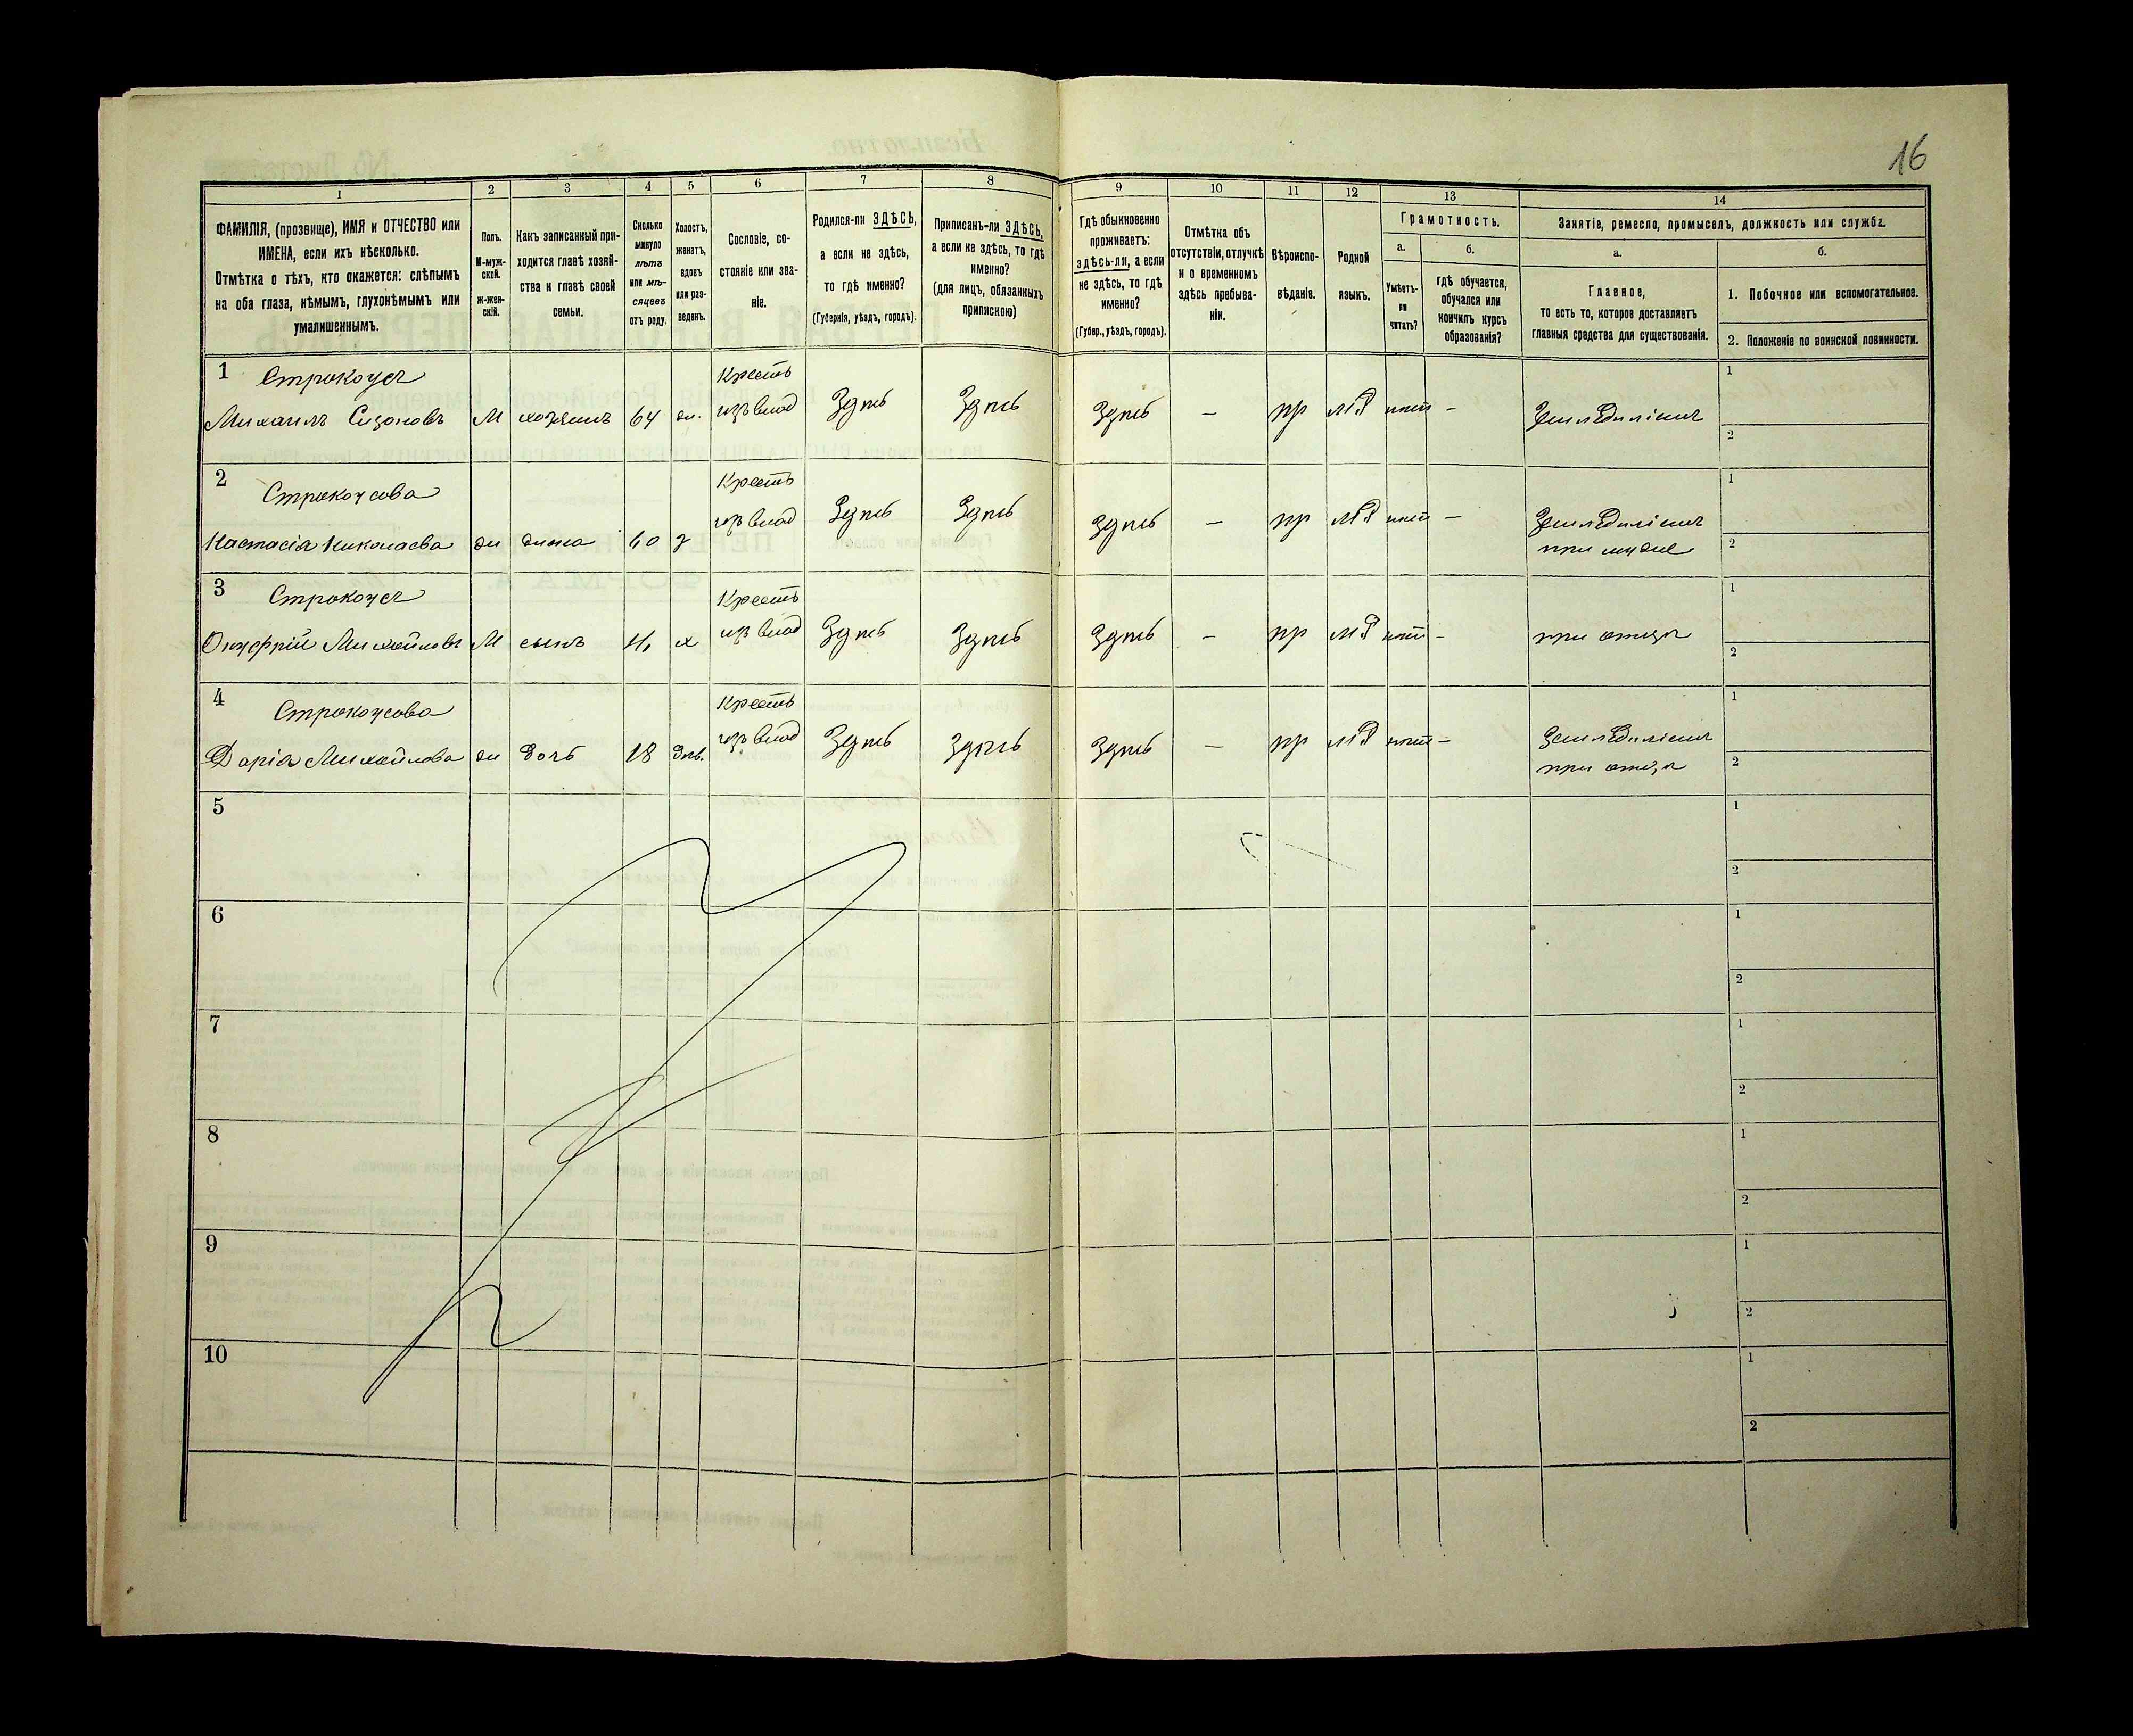 16
1
2
3
4
5
6
7
8
9
10
11
12
13
14
ФАМИЛІЯ, (прозвище), ИМЯ и ОТЧЕСТВО или
ИМЕНА, если ихъ нѣсколько.
Отмѣтка о тѣхъ, кто окажется: слѣпымъ
на оба глаза, нѣмымъ, глухонѣмымъ или
умалишеннымъ.
Полъ.
М-муж-
ской.
Ж-жен-
скій.
Какъ записанный при-
ходится главѣ хозяй-
ства и главѣ своей
семьи.
Сколько
минуло
лѣтъ
или мѣ-
сяцевъ
отъ роду.
Холостъ,
женатъ,
вдовъ
или раз-
веденъ.
Сословіе, со-
стояніе или зва-
ніе.
Родился-ли ЗДѢСЬ,
а если не здѣсь,
то гдѣ именно?
(Губернія, уѣздъ, городъ).
Приписанъ-ли ЗДѢСЬ,
а если не здѣсь, то гдѣ
именно?
(для лицъ, обязанныхъ
припискою)
Гдѣ обыкновенно
проживаетъ:
здѣсь-ли, а если
не здѣсь, то гдѣ
именно?
(Губер., уѣздъ, городъ).
Отмѣтка объ
отсутствіи, отлучкѣ
и о временномъ
здѣсь пребыва-
ніи.
Вѣроиспо-
вѣданіе.
Родной
языкъ.
Грамотность.
а.
Умѣетъ-
ли
читать?
б.
гдѣ обучается,
обучался или
кончилъ курсъ
образованія?
Занятіе, ремесло, промыселъ, должность или служба.
а.
Главное,
то есть то, которое доставляетъ
главныя средства для существованія.
б.
1. Побочное или вспомогательное.
2. Положеніе по воинской повинности.
1 Строкоусъ Крестъ 1
Михаилъ М хозяинъ 64 ж. Здѣсь Здѣсь Здѣсь — пр нѣтъ — 2
2 Строкоусова Крестъ 1
Настасія Николаева ж жена Здѣсь Здѣсь Здѣсь — пр нѣтъ — 2
при мужѣ
3 Строкоусъ Крестъ 1
Онуфрій Михайловъ М сынъ х Здѣсь Здѣсь Здѣсь — пр нѣтъ — при отцѣ 2
4 Строкоусова Крестъ 1
Дарія Михайлова ж дочь 18 дѣв. Здѣсь Здѣсь Здѣсь — пр нѣтъ — 2
при отцѣ
5 1
2
6 1
2
7 1
2
8 1
2
9 1
2
10 1
2